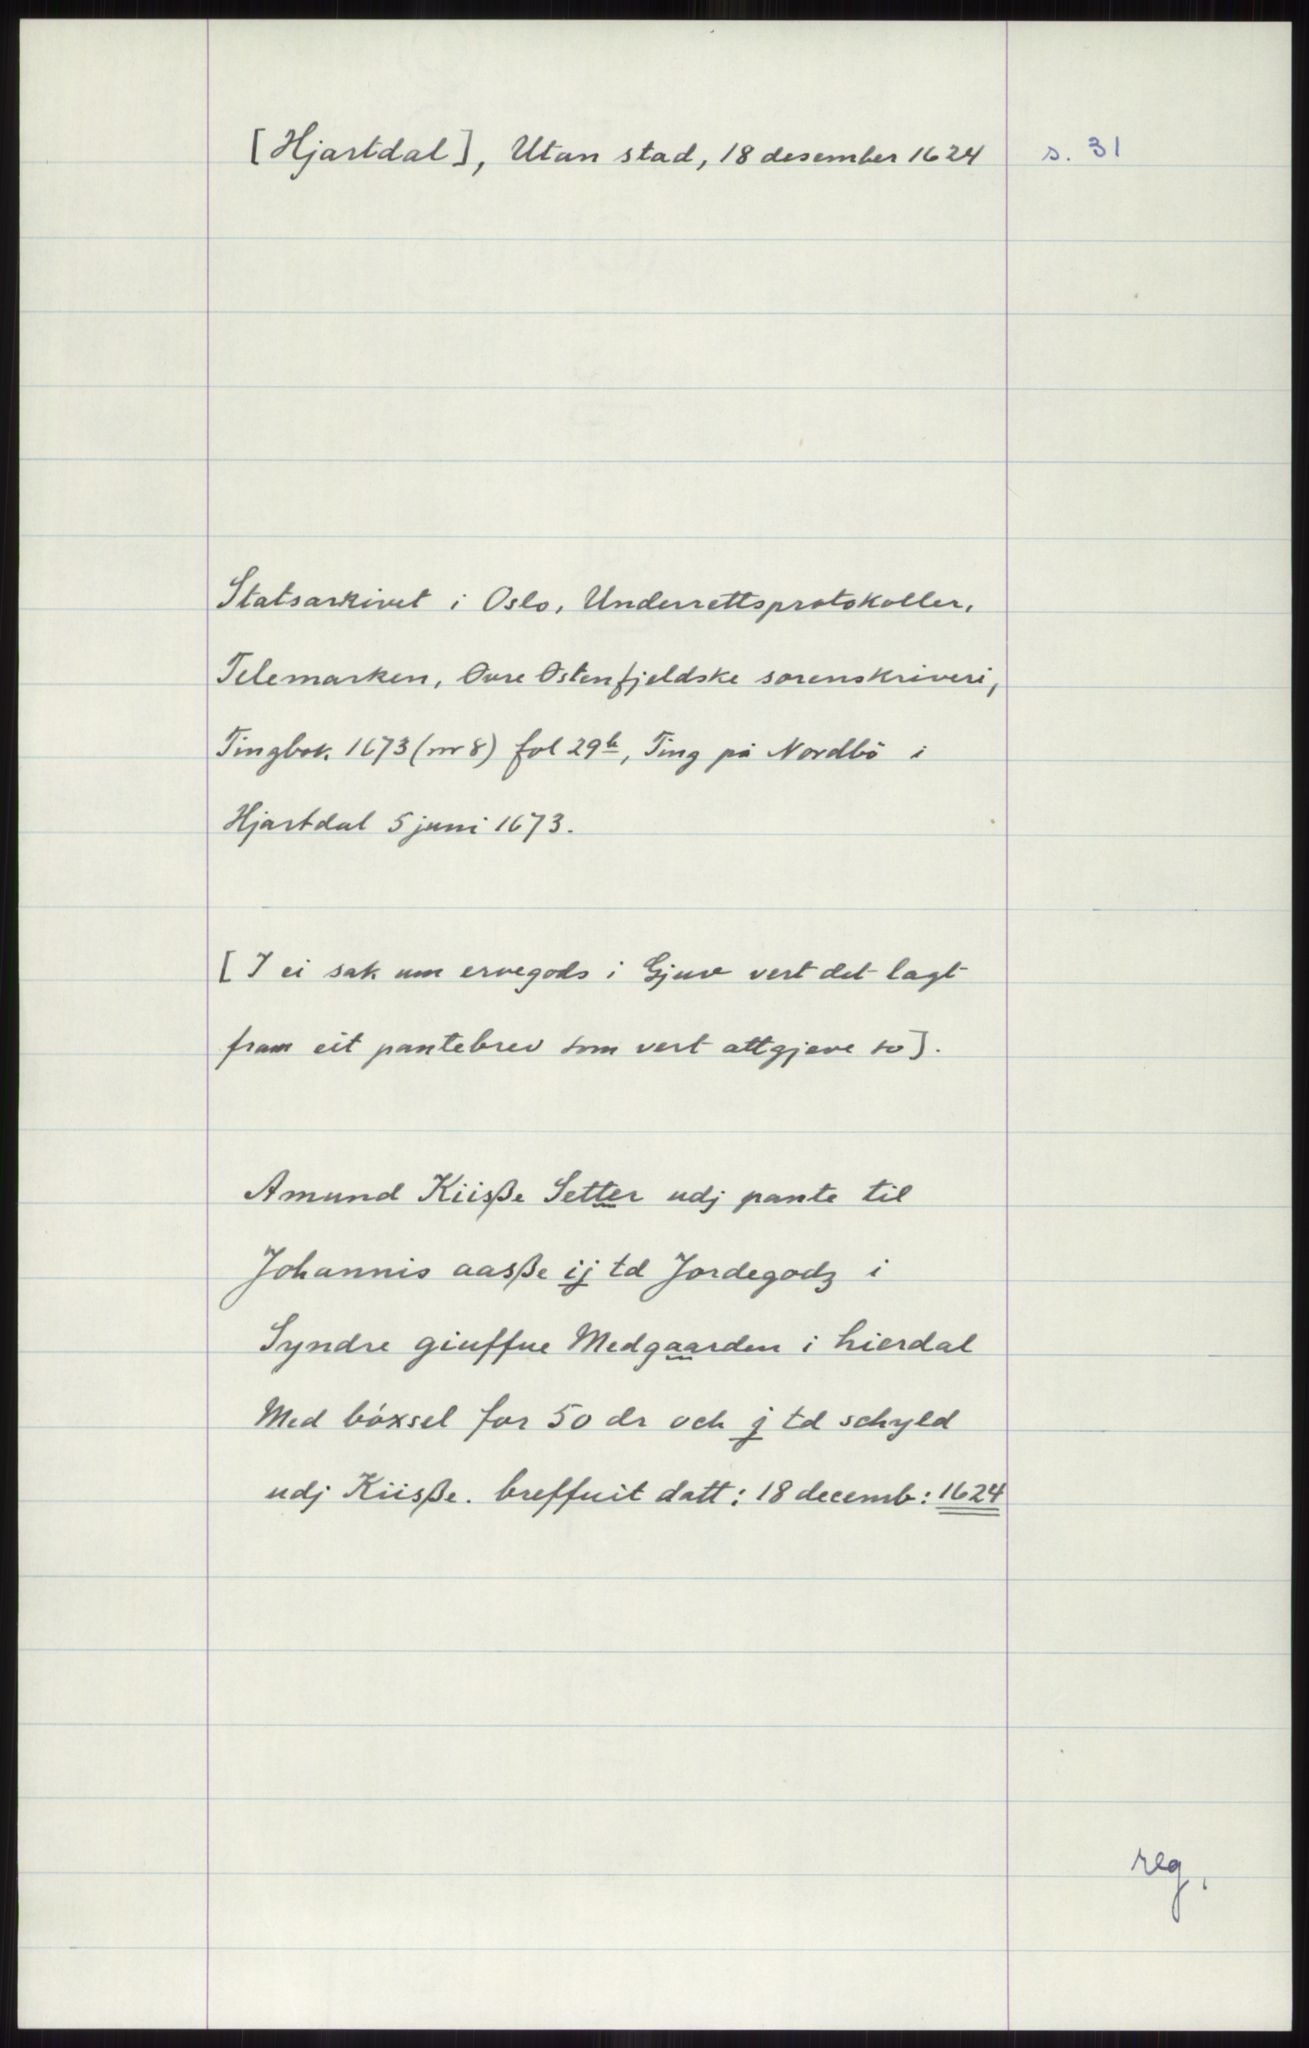 [Hjartdal], Utan stad, 18 desember 1624 s. 31
Statsarkivet i Oslo, Underrettsprotokoller,
Telemarken, Øvre Østenfjeldske sorenskriveri,
Tingbok 1673 (nr 8) fol 29b, Ting på Nordbö i
Hjartdal 5 juni 1673.
[I ei sak um ervegods i Gjuv vert det lagt
fram eit pantebrev som vert attgjeve so].
Amund Kiisße Setter udj pante til
Johannis aasße ij td Jordegodz i
Syndre giuffue Medgaarden i hierdal
Med böxsel for 50 dr och j td schyld
udj Kiisße. breffuit datt: 18 decemb: 1624
reg.